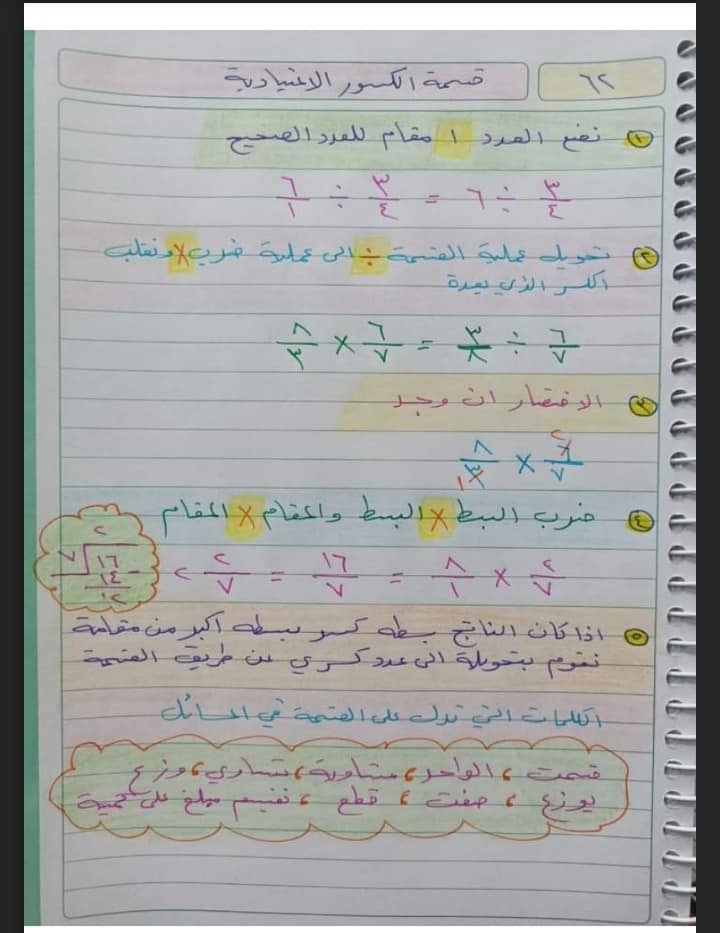 ٦٢ قسمة الكسور الاعتيادية
١ نضع العدد ١ مقام للعدد الصحيح
٣/٤ ÷ ٦ = ٣/٤ ÷ ٦/١
٢ تحويل عملية القسمة ÷ الى عملية ضرب × ونقلب
الكسر الذي بعدة
٦/٧ ÷ ٣/٨ = ٦/٧ × ٨/٣
٣ الاختصار ان وجد
٦/٧ × ٨/٣
٢ ١
٤ ضرب البسط × البسط والمقام × المقام
٢/٧ × ٨/١ = ١٦/٧ = ٢ ٢/٧
٢
٧ ١٦
١٤ -
٥ اذا كان الناتج بسطه كسر بسطه اكبر من مقامة
نقوم بتحويلة الى عدد كسري عن طريق القسمة
الكلمات التي تدل على القسمة في المسائل
قسمت ، الواحد ، متساوية ، تساوي ، وزع
يوزع ، صفت ، قطع ، تقسيم مبلغ على